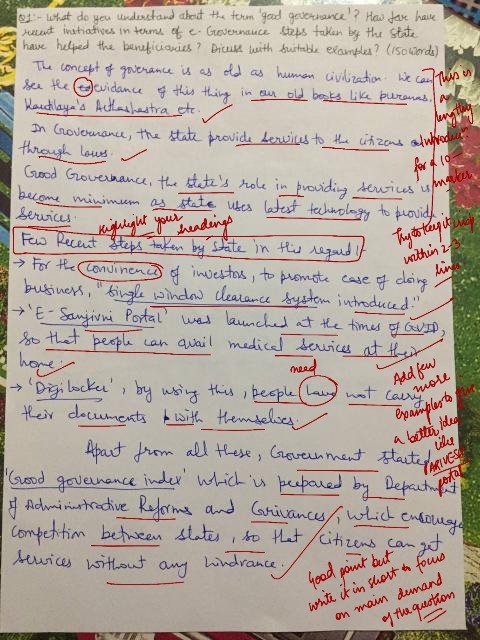 Q1:- What do you understand about the term 'good governance'? How far have
recent initiatives in terms of e-Governance steps taken by the State
have helped the beneficiaries? Discuss with suitable examples? (150 words)
The concept of goverance is as old as human civilization. We can
see the evidance of this thing in our old books like puranas,
Kautilaya's Arthashastra etc.
In Governance, the state provide services to the citizens
through laws.
Good Governance, the state's role in providing services is
become minimum as state uses latest technology to provide
services.
Highlight your headings
Few Recent Steps taken by State in this regard!
→ For the convinence of investors, to promote ease of doing
business, "single window clearance system introduced."
→ 'E-Sanjivni Portal' was launched at the times of COVID,
so that people can avail medical services at their
home.
need
→ 'Digilocker', by using this, people have not carry
their documents with themselves.
Apart from all these, Government started
'Good governance index' which is prepared by Department
of Administrative Reforms and Grivances, which encourage
competition between states, so that citizens can get
services without any hindrance.
This is
a
lengthy
introduction
for a 10
marker.
Try to keep it
within 2-3
lines
Add few
more
examples to
a better idea
like
PARIVESH
portal
Good point but
write it in short & focus
on main demand
of the question